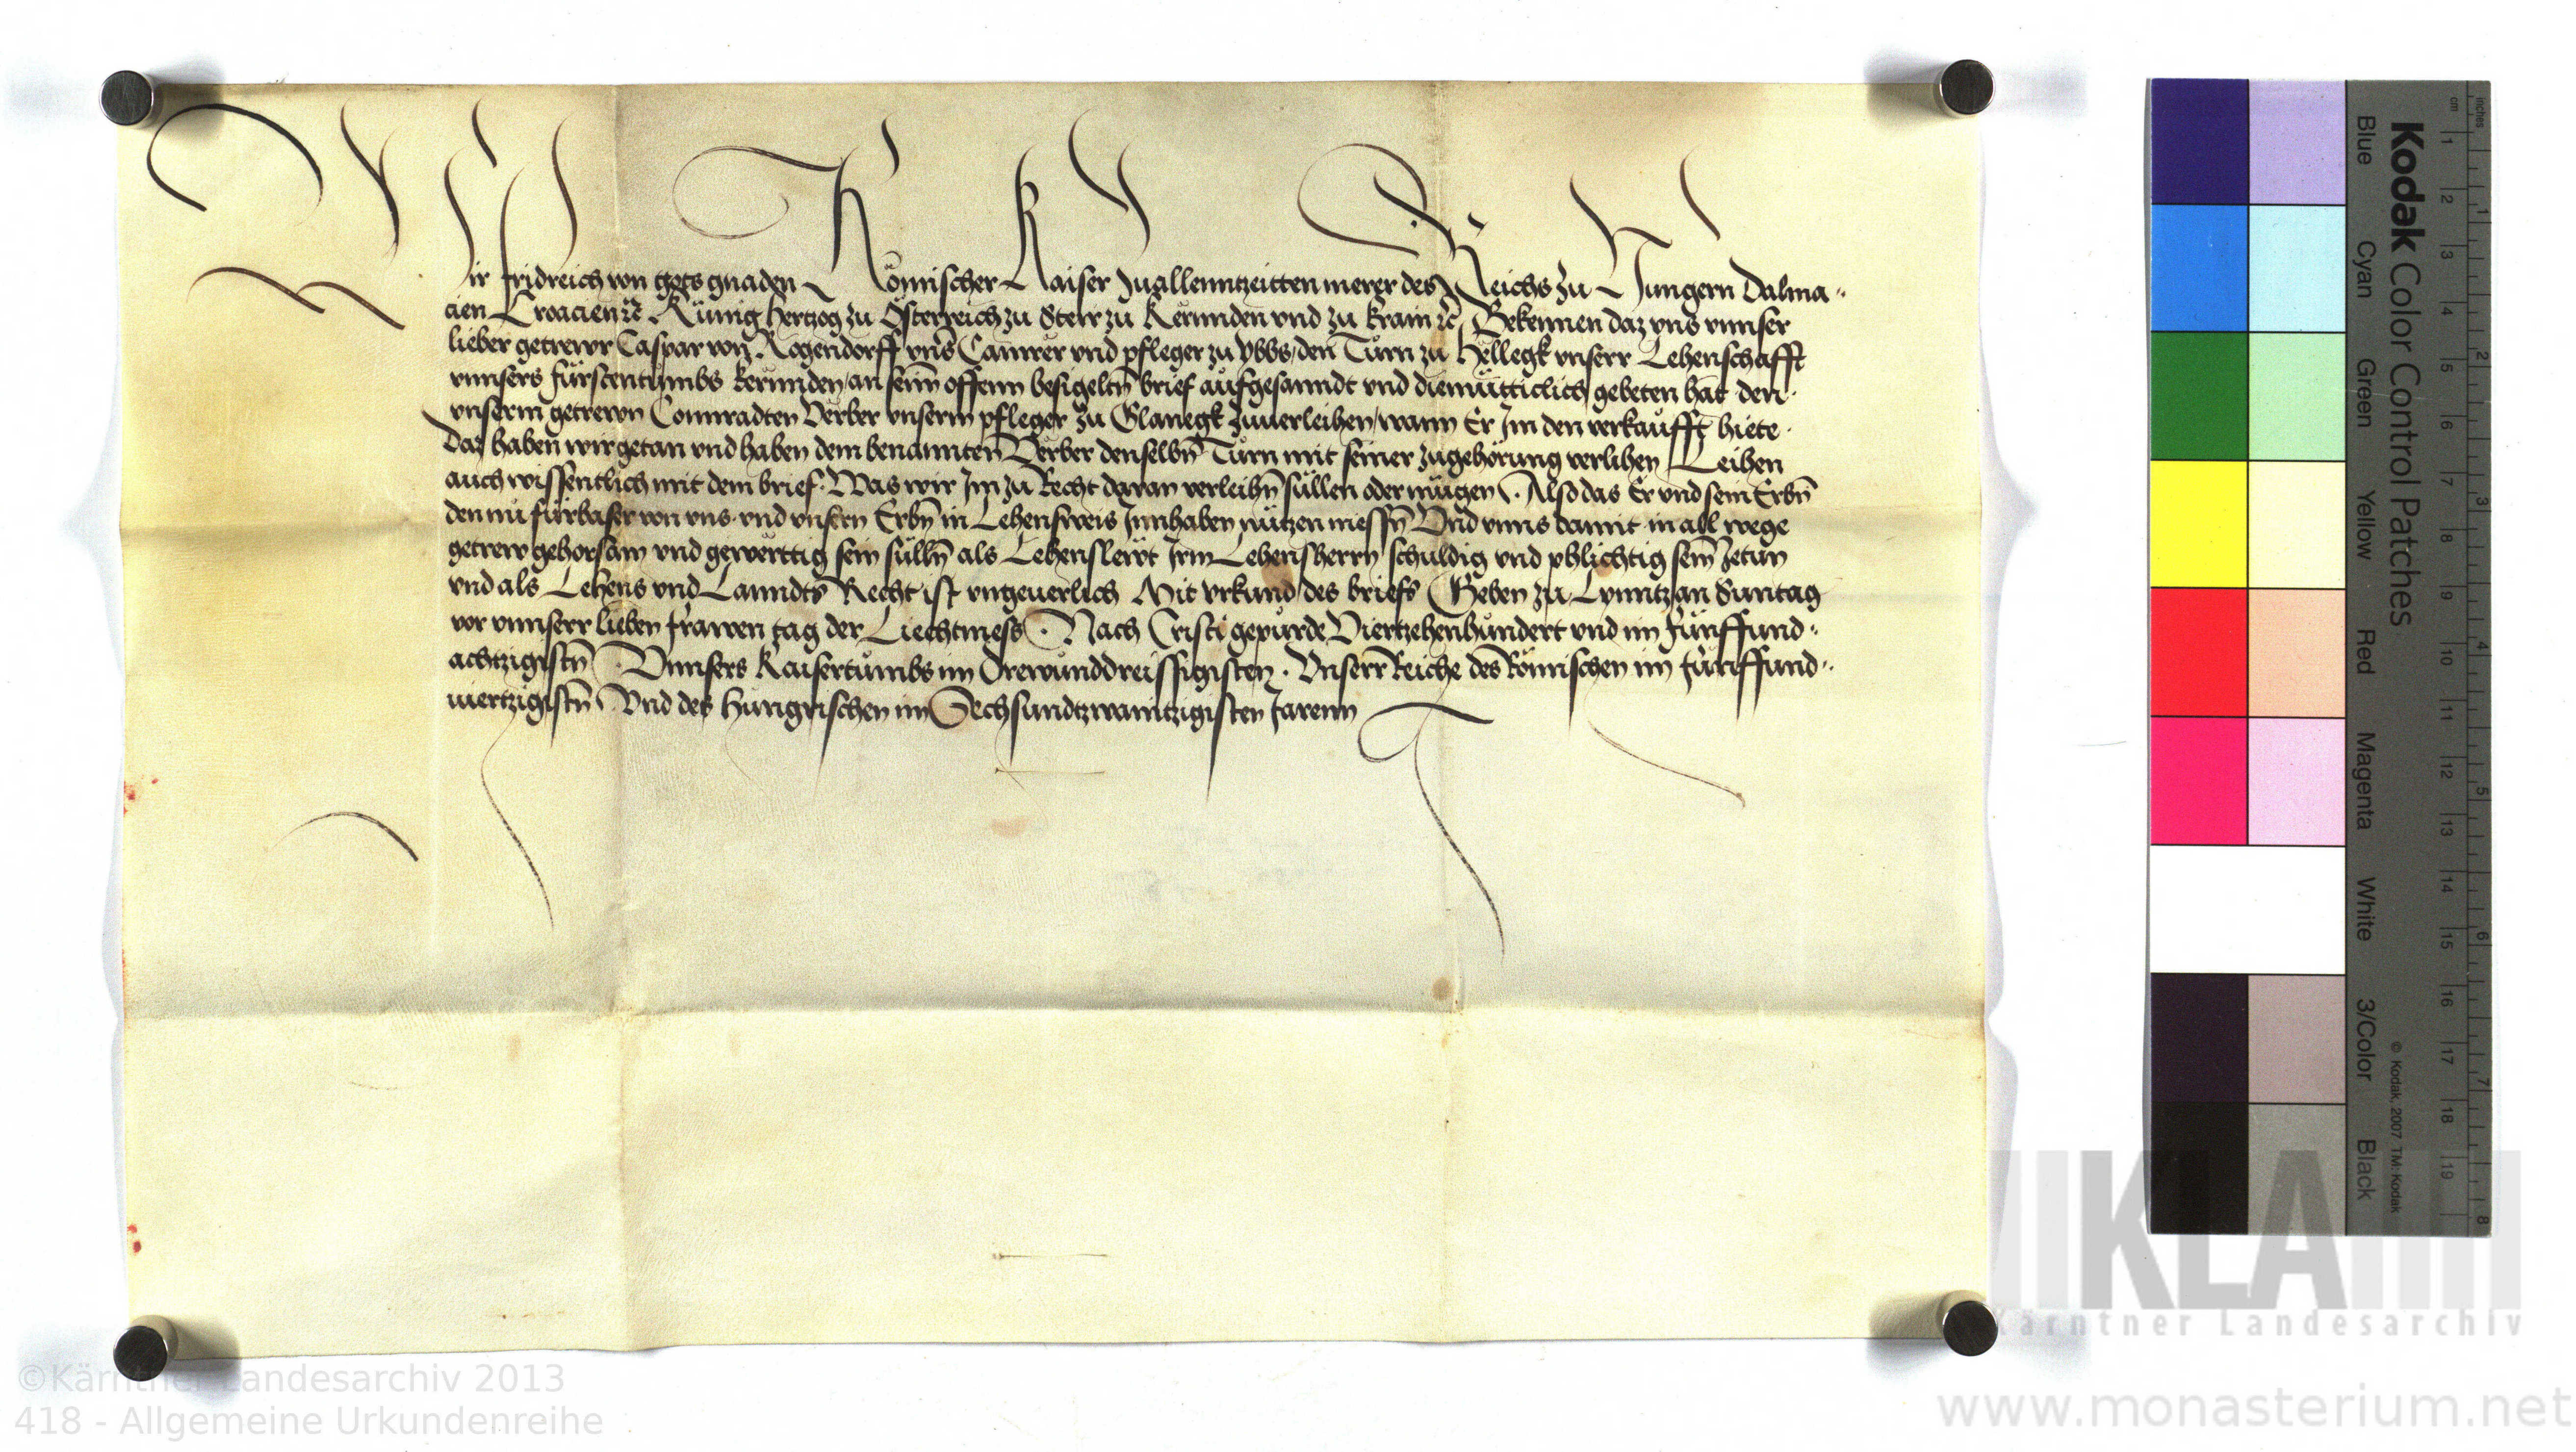 Wir Fridreich von gots gnaden Römischer Kaiser zuallenntzeitten merer des Reichs zu Hungern Dalma-
cien Croacien ꝛc Künig Hertzog zu Österreich zu Steir zu Kernnden vnd zu Krain ꝛc Bekennen daz vns vnnser
lieber getrewr Caspar von Rogendorff vnser Camrer vnd pfleger zu Ybbs, den Turn zu Hellegk vnserr Lehenschafft
vnnsers fürstentumbs Kernnden, an seinn offenn besigeltn̄ brief aufgesanndt vnd diemütticlich gebeten hat den
vnserm getrewn Connradten Verber vnserm pfleger zu Glanegk zuuerleihen, wann Er Im den verkaufft hiete.
Daz haben wir getan vnd haben dem benannten Verber denselbn̄ Turn mit seiner zugehörung verlihen Leihen
auch wissentlich mit dem brief. Was wir Im zu Recht daran verleihn̄ süllen oder mügen. Also das Er vnd sein Erbn̄
den nu fürbaser von vns vnd vnsern Erbn̄ in Lehensweis Innhaben nützen niessn̄ Vnd vnns damit in all wege
getrew gehorsam vnd gewerttig sein sülln̄ als Lehenslewt Irm Lehensherrn schuldig vnd phlichtig sein zetun
vnd als Lehens vnd Lanndts Recht ist vngeuerlich Mit vrkund des briefs Geben zu Lynntz an Suntag
vor vnnserr lieben frawen tag der Liechtmess. Nach Cristi gepurde Viertzehenhundert vnd im Fünffund-
achtzigistn̄. Vnnsers Kaisertumbs im Drewunddreissigisten. Vnserr Reiche des Römischen im Fünffund-
viertzigistn̄ Vnd des Hungrischen im Sechsundtzwaintzigisten Jarenn
Kodak Color Control Patches
Blue Cyan Green Yellow Red Magenta White 3/Color Black
© Kodak, 2007 TM: Kodak
cm 1 2 3 4 5 6 7 8 9 10 11 12 13 14 15 16 17 18 19
inches 1 2 3 4 5 6 7 8
KLA
Kärntner Landesarchiv
©Kärntner Landesarchiv 2013
418 - Allgemeine Urkundenreihe
www.monasterium.net